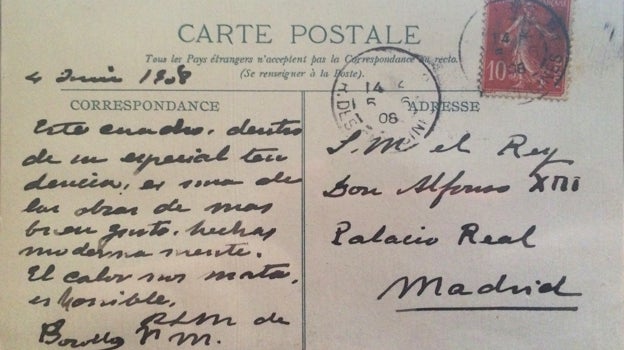 CARTE POSTALE
Tous les Pays étrangers n'acceptent pas la Correspondance au recto.
(Se renseigner à la Poste).
4 Juin 1908
CORRESPONDANCE
Este cuadro, dentro
de su especial ten
dencia, es una de
las obras de mas
buen gusto, hechas
modernamente.
El calor nos mata,
es horrible.
de
P. M.
ADRESSE
S. M. el Rey
Don Alfonso XIII
Palacio Real
Madrid
14
08
10